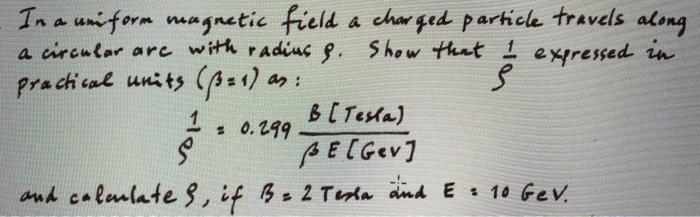 In a uniform magnetic field a charged particle travels along
a circular arc with radius ρ. Show that 1/ρ expressed in
practical units (β=1) as:
1/ρ = 0.299 B[Tesla) / β E[GeV]
and calculate ρ, if B = 2 Tesla and E = 10 GeV.